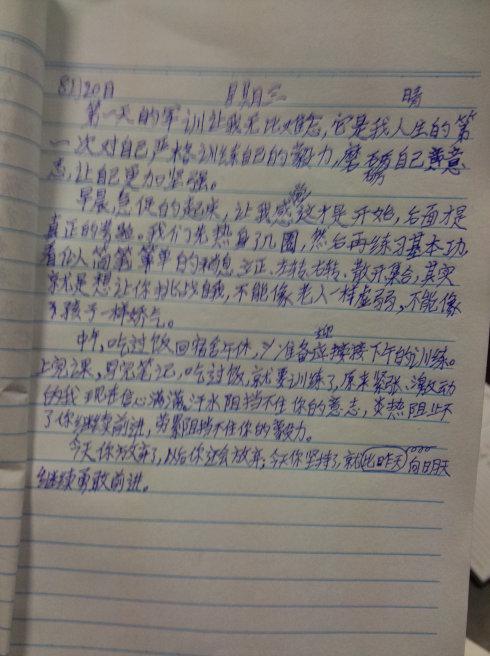 8月20日 星期三 晴
第一天的军训让我无比难忘,它是我人生的第
一次对自己严格训练自己的毅力,磨砺自己意
志,让自己更加坚强。
早晨急促的起床,让我感觉这才是开始,后面才是
真正的考验。我们先热身了几圈,然后再练习基本功
看似简单的稍息立正、左转右转、散开集合,其实
就是想让你挑战自我,不能像老人一样虚弱,不能像
孩子一样娇气。
中午,吃过饭回宿舍午休,准备迎接下午的训练。
上完课,写完笔记,吃过饭,就要训练了,原来紧张、激动
的我现在信心满满。汗水阻挡不住你的意志,炎热阻止不
了你继续前进,劳累阻挡不住你的毅力。
今天你放弃了,以后你还会放弃;今天你坚持了,就比昨天向明天
继续勇敢前进。